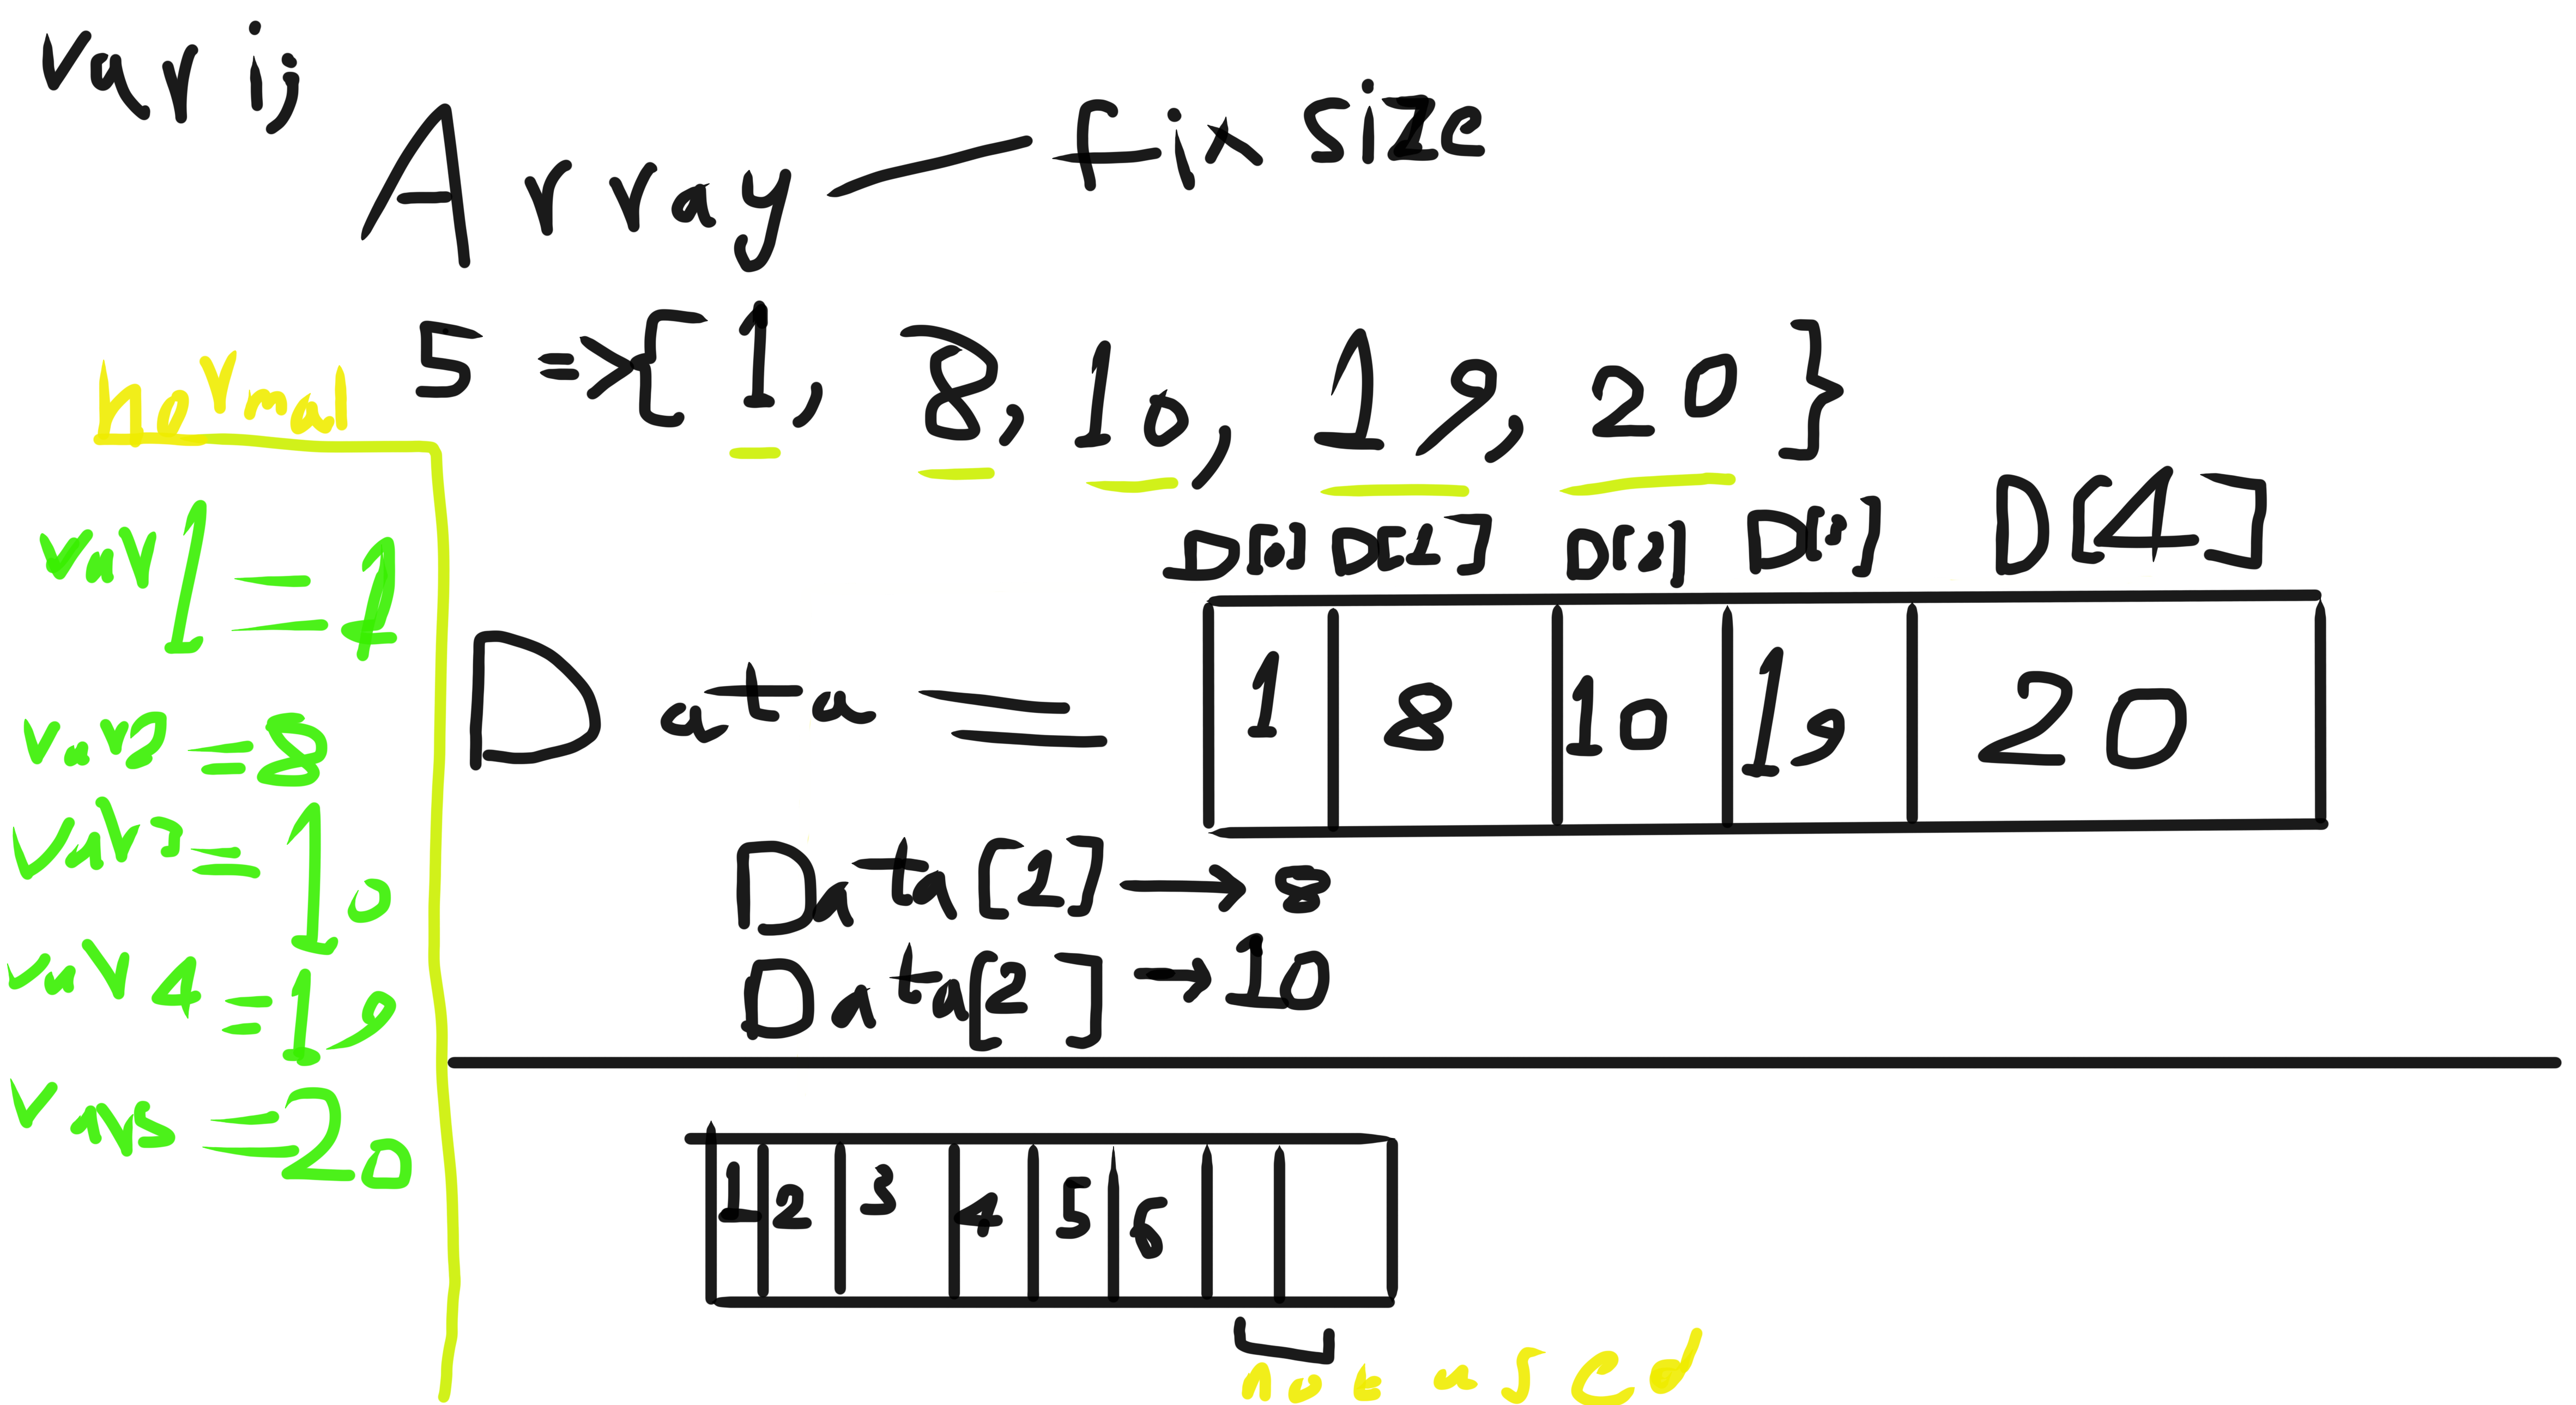 var i;
Array — fix size
5 => { 1, 8, 10, 19, 20 }
normal
var1 = 1
var2 = 8
var3 = 10
var4 = 19
var5 = 20
D[0] D[1] D[2] D[3] D[4]
Data = 1 8 10 19 20
Data[1] → 8
Data[2] → 10
1 2 3 4 5 6
not used